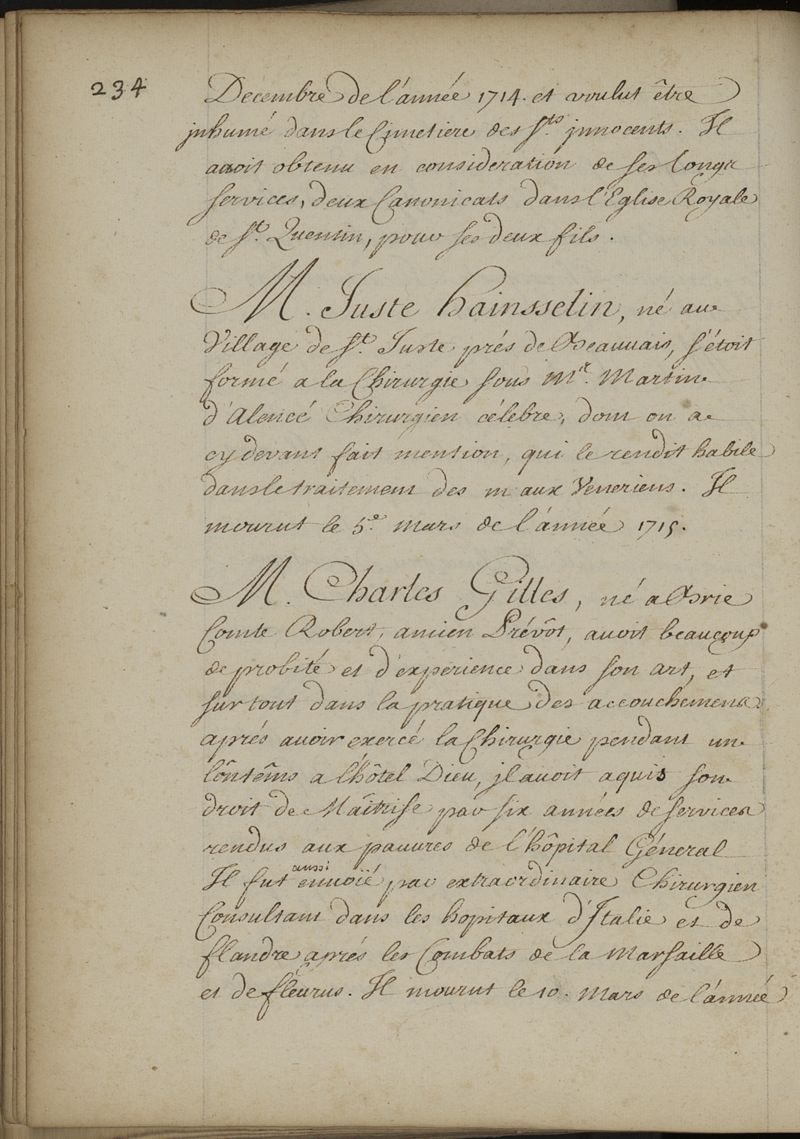 234
Decembre de l'année 1714. et voulut être
inhumé dans le Cimetiere des Sts. jnnocents. Il
avoit obtenu en consideration de ses longs
services, deux Canonicats dans l'Eglise Royale
de St. Quentin, pour ses deux fils.
M. Juste hainsselin, né au
Village de St. Juste prés de Beauvais, s'étoit
formé a la Chirurgie sous Mr. Martin
d'Alencé Chirurgien célebre, dont on a
cy devant fait mention, qui le rendit habile
dans le traitement des maux Veneriens. Il
mourut le 5e. Mars de l'année 1715.
M. Charles Gilles, né a Brie
Comte Robert, ancien Prévôt, avoit beaucoup
de probité et d'experience dans son art, et
sur tout dans la pratique des accouchemens
aprés avoir exercé la Chirurgie pendant un
lôntêms a l'hôtel Dieu, jl avoit aquis son
droit de Maîtrise par six années de services
rendus aux pauvres de l'hôpital Géneral
Il fut aussi envoié par extraordinaire Chirurgien
Consultant dans les hopitaux d'Italie et de
flandre aprés les Combats de la Marsaille
et de fleurus. Il mourut le 10. Mars de l'année